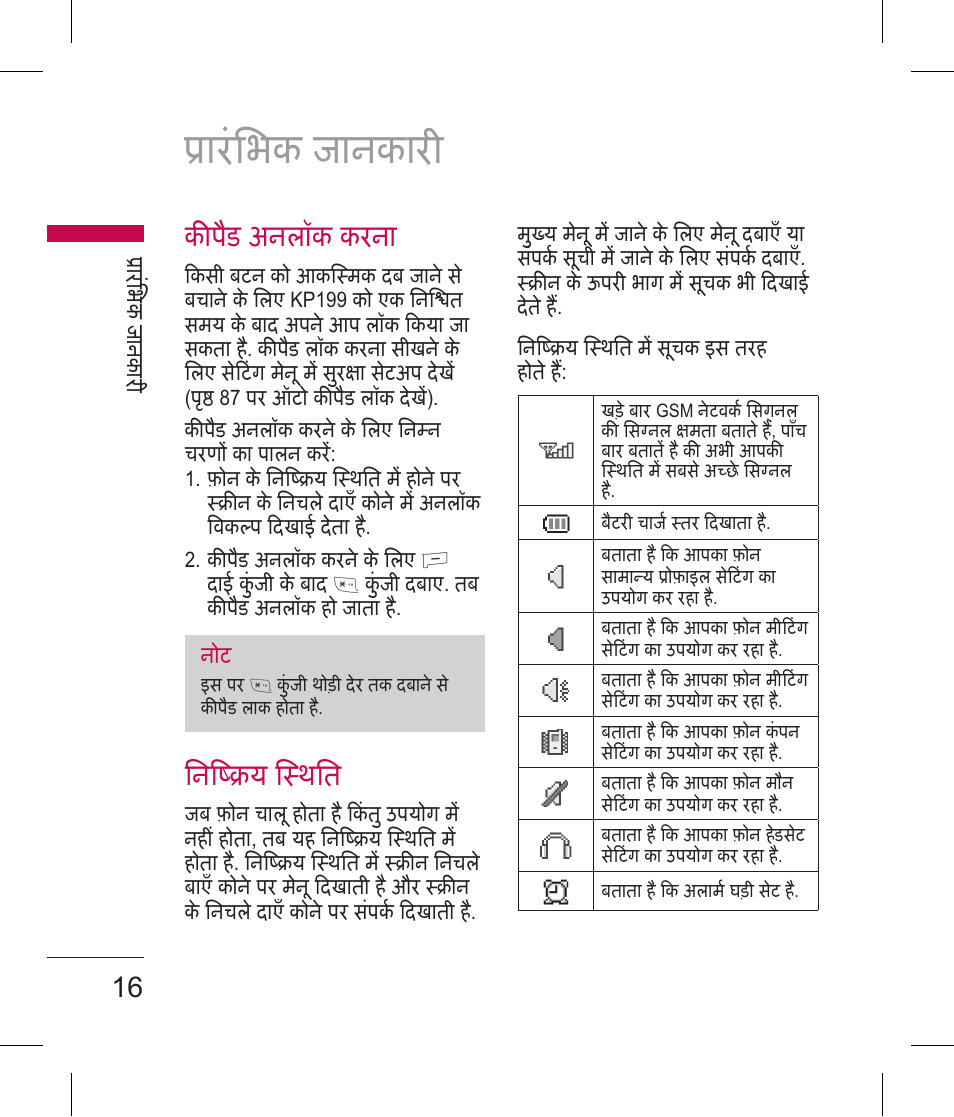 प्रारंभिक जानकारी
प्रारंभिक जानकारी
कीपैड अनलॉक करना
किसी बटन को आकस्मिक दब जाने से
बचाने के लिए KP199 को एक निश्चित
समय के बाद अपने आप लॉक किया जा
सकता है. कीपैड लॉक करना सीखने के
लिए सेटिंग मेनू में सुरक्षा सेटअप देखें
(पृष्ठ 87 पर ऑटो कीपैड लॉक देखें).
कीपैड अनलॉक करने के लिए निम्न
चरणों का पालन करें:
1. फ़ोन के निष्क्रिय स्थिति में होने पर
स्क्रीन के निचले दाएँ कोने में अनलॉक
विकल्प दिखाई देता है.
2. कीपैड अनलॉक करने के लिए
दाई कुंजी के बाद कुंजी दबाए. तब
कीपैड अनलॉक हो जाता है.
नोट
इस पर कुंजी थोड़ी देर तक दबाने से
कीपैड लाक होता है.
निष्क्रिय स्थिति
जब फ़ोन चालू होता है किंतु उपयोग में
नहीं होता, तब यह निष्क्रिय स्थिति में
होता है. निष्क्रिय स्थिति में स्क्रीन निचले
बाएँ कोने पर मेनू दिखाती है और स्क्रीन
के निचले दाएँ कोने पर संपर्क दिखाती है.
मुख्य मेनू में जाने के लिए मेनू दबाएँ या
संपर्क सूची में जाने के लिए संपर्क दबाएँ.
स्क्रीन के ऊपरी भाग में सूचक भी दिखाई
देते हैं.
निष्क्रिय स्थिति में सूचक इस तरह
होते हैं:
खड़े बार GSM नेटवर्क सिगनल
की सिग्नल क्षमता बताते हैं, पाँच
बार बतातें है की अभी आपकी
स्थिति में सबसे अच्छे सिग्नल
है.
बैटरी चार्ज स्तर दिखाता है.
बताता है कि आपका फ़ोन
सामान्य प्रोफ़ाइल सेटिंग का
उपयोग कर रहा है.
बताता है कि आपका फ़ोन मीटिंग
सेटिंग का उपयोग कर रहा है.
बताता है कि आपका फ़ोन मीटिंग
सेटिंग का उपयोग कर रहा है.
बताता है कि आपका फ़ोन कंपन
सेटिंग का उपयोग कर रहा है.
बताता है कि आपका फ़ोन मौन
सेटिंग का उपयोग कर रहा है.
बताता है कि आपका फ़ोन हेडसेट
सेटिंग का उपयोग कर रहा है.
बताता है कि अलार्म घड़ी सेट है.
16